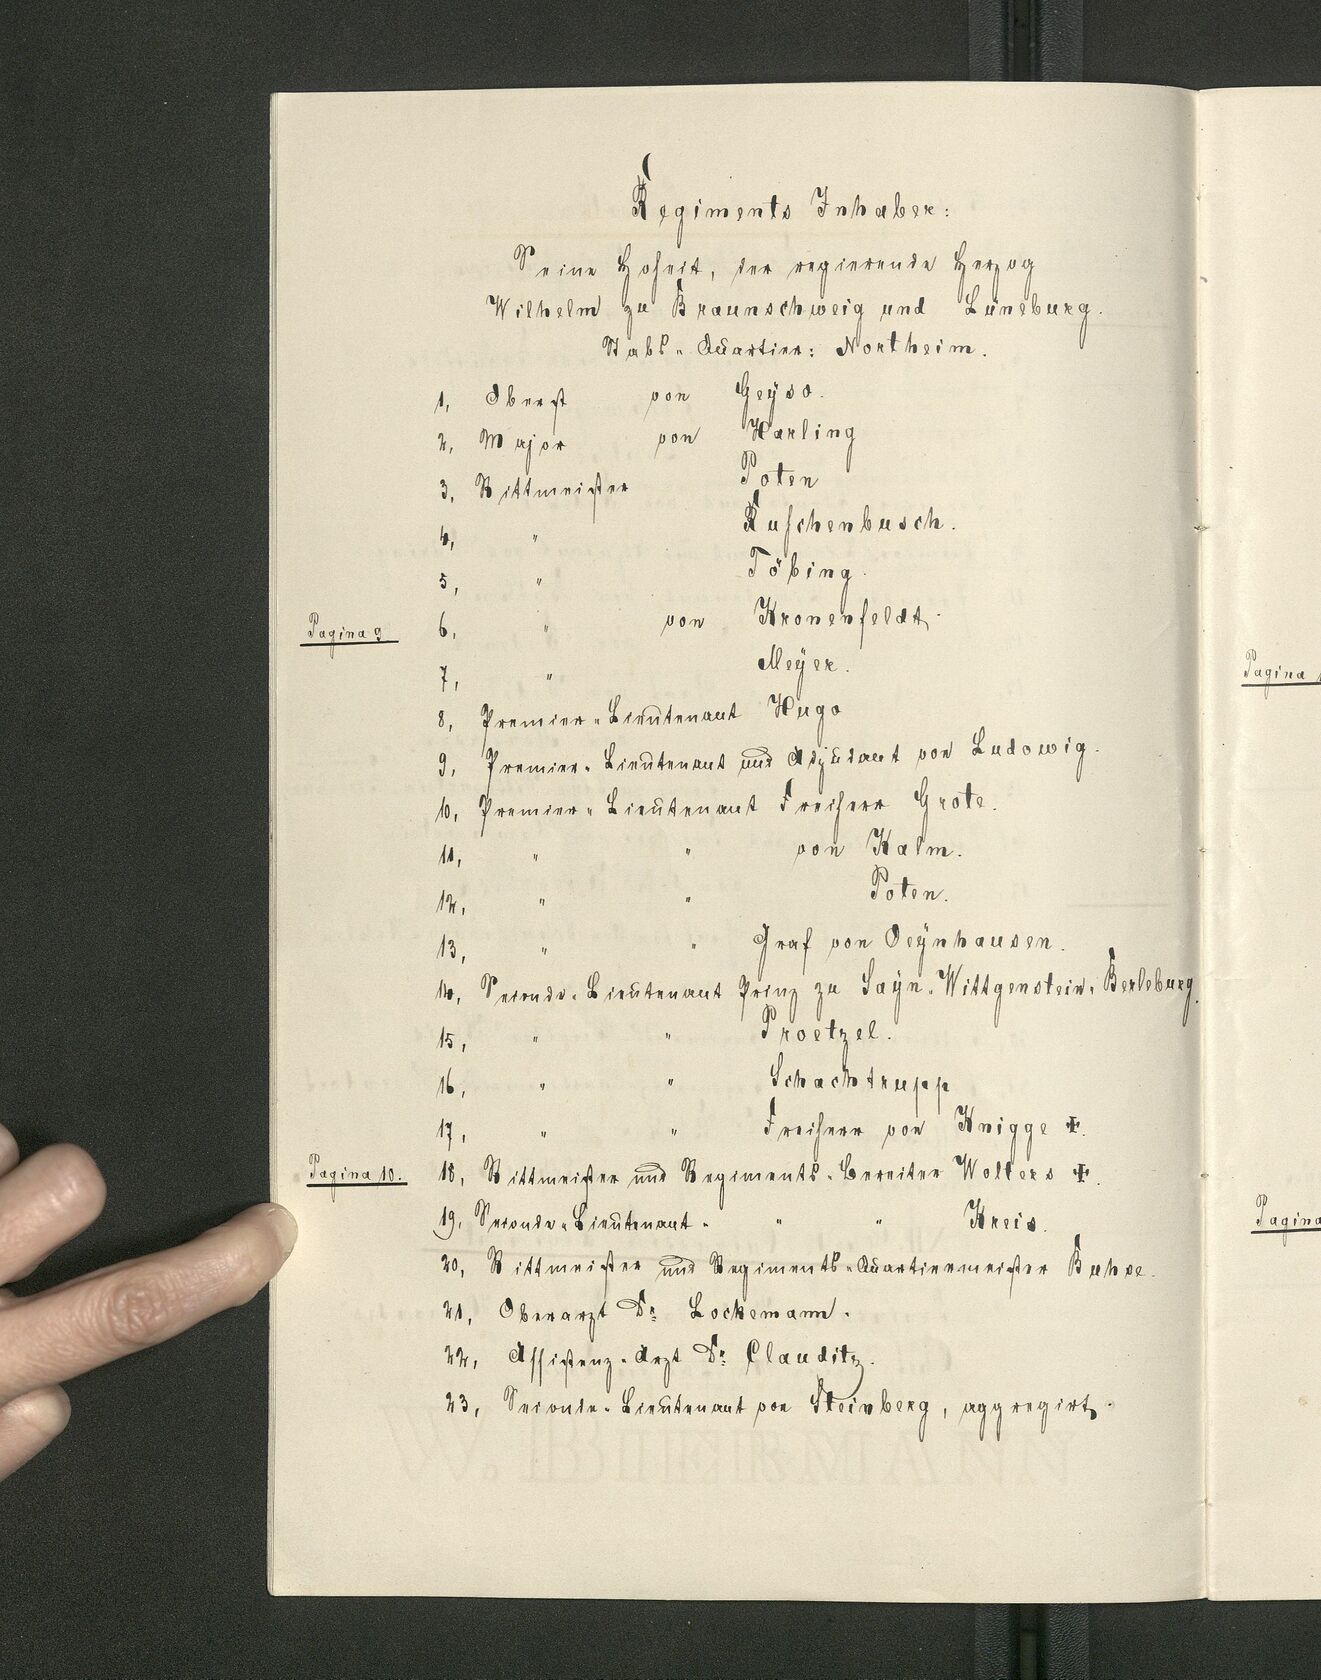 Regiments Inhaber:
Seine Hoheit, der regierende Herzog
Wilhelm zu Braunschweig und Lüneburg.
Stabs-Quartier: Northeim.
1, Oberst von Geÿso.
2, Major von Harling
3, Rittmeister Poten
4, " Kuschenbusch.
5, " Töbing.
Pagina 9
6, " von Kronenfeldt.
7, " Meÿer.
8, Premier-Lieutenant Hugo
9, Premier-Lieutenant und Adjudant von Ludowig.
10, Premier-Lieutenant Freiherr Grote.
11, " " von Kalm.
12, " " Poten.
13, " " Graf von Oeÿnhausen.
14, Seconde-Lieutenant Prinz zu Saÿn-Wittgenstein-Berleburg.
15, " " Proetzel.
16, " " Schachtrupp
17, " " Freiherr von Knigge ✠.
Pagina 10.
18, Rittmeister und Regiments-Bereiter Wolters ✠.
19, Seconde-Lieutenant - " " Kreis.
20, Rittmeister und Regiments-Quartiermeister Buhse.
21, Oberarzt Dr. Lockemann.
22, Assistenz-Arzt Dr. Clauditz.
23, Seconde-Lieutenant von Steinberg, aggregirt.
Pagina
Pagina